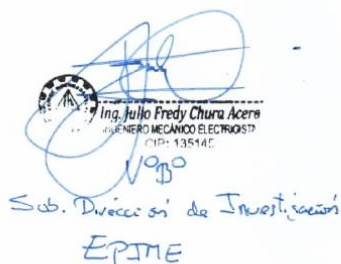 Ing. Julio Fredy Chura Acero
INGENIERO MECÁNICO ELECTRICISTA
CIP: 135145
V°B°
Sub. Dirección de Investigación
EPIME